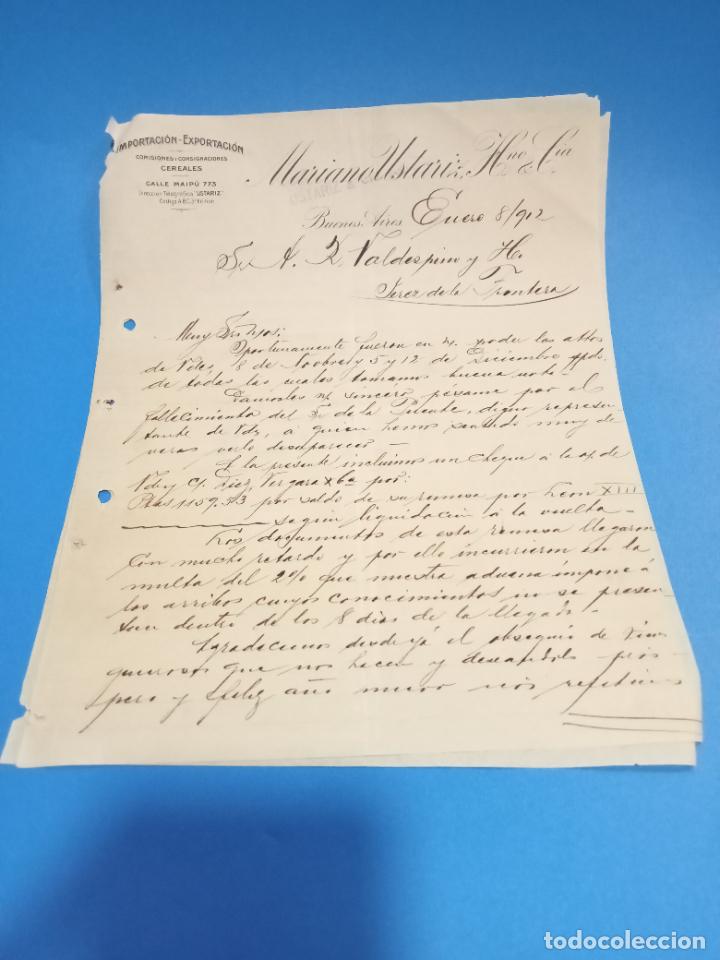 IMPORTACIÓN-EXPORTACIÓN
COMISIONES Y CONSIGNACIONES
CEREALES
CALLE MAIPÚ 773
Dirección Telegráfica "USTARIZ"
Mariano Ustariz, Hno. & Cia
Buenos Aires Enero 8/912
Sr. A. R. Valdespino y Ho.
Jerez de la Frontera
Muy Sres ntros:
Oportunamente fueron en n/. poder las attas
de Vdes, 8 de Novbre y 5 y 12 de Diciembre ppdo.
de todas las cuales tomamos buena nota.
Damosles n/. sincero pésame por el
fallecimiento del Sr de la Puente, digno represen-
tante de Vds, á quien hemos sentido muy de
veras verlo desaparecer.
A la presente incluimos un cheque á la o/. de
Vds y c/. Diez, Vergara y Ca por:
Ptas 1159.53 por saldo de su remesa por León XIII
según liquidación á la vuelta.
Los documentos de esta remesa llegaron
con mucho retardo y por ello incurrieron en la
multa del 2% que nuestra aduana impone á
los arribos cuyos conocimientos no se presen-
tan dentro de los 8 dias de la llegada.
Agradecemos desde yá el obsequio de vinos
generosos que nos hacen y deseandoles prós-
pero y feliz año nuevo nos repetimos
todocoleccion
todocoleccion.net